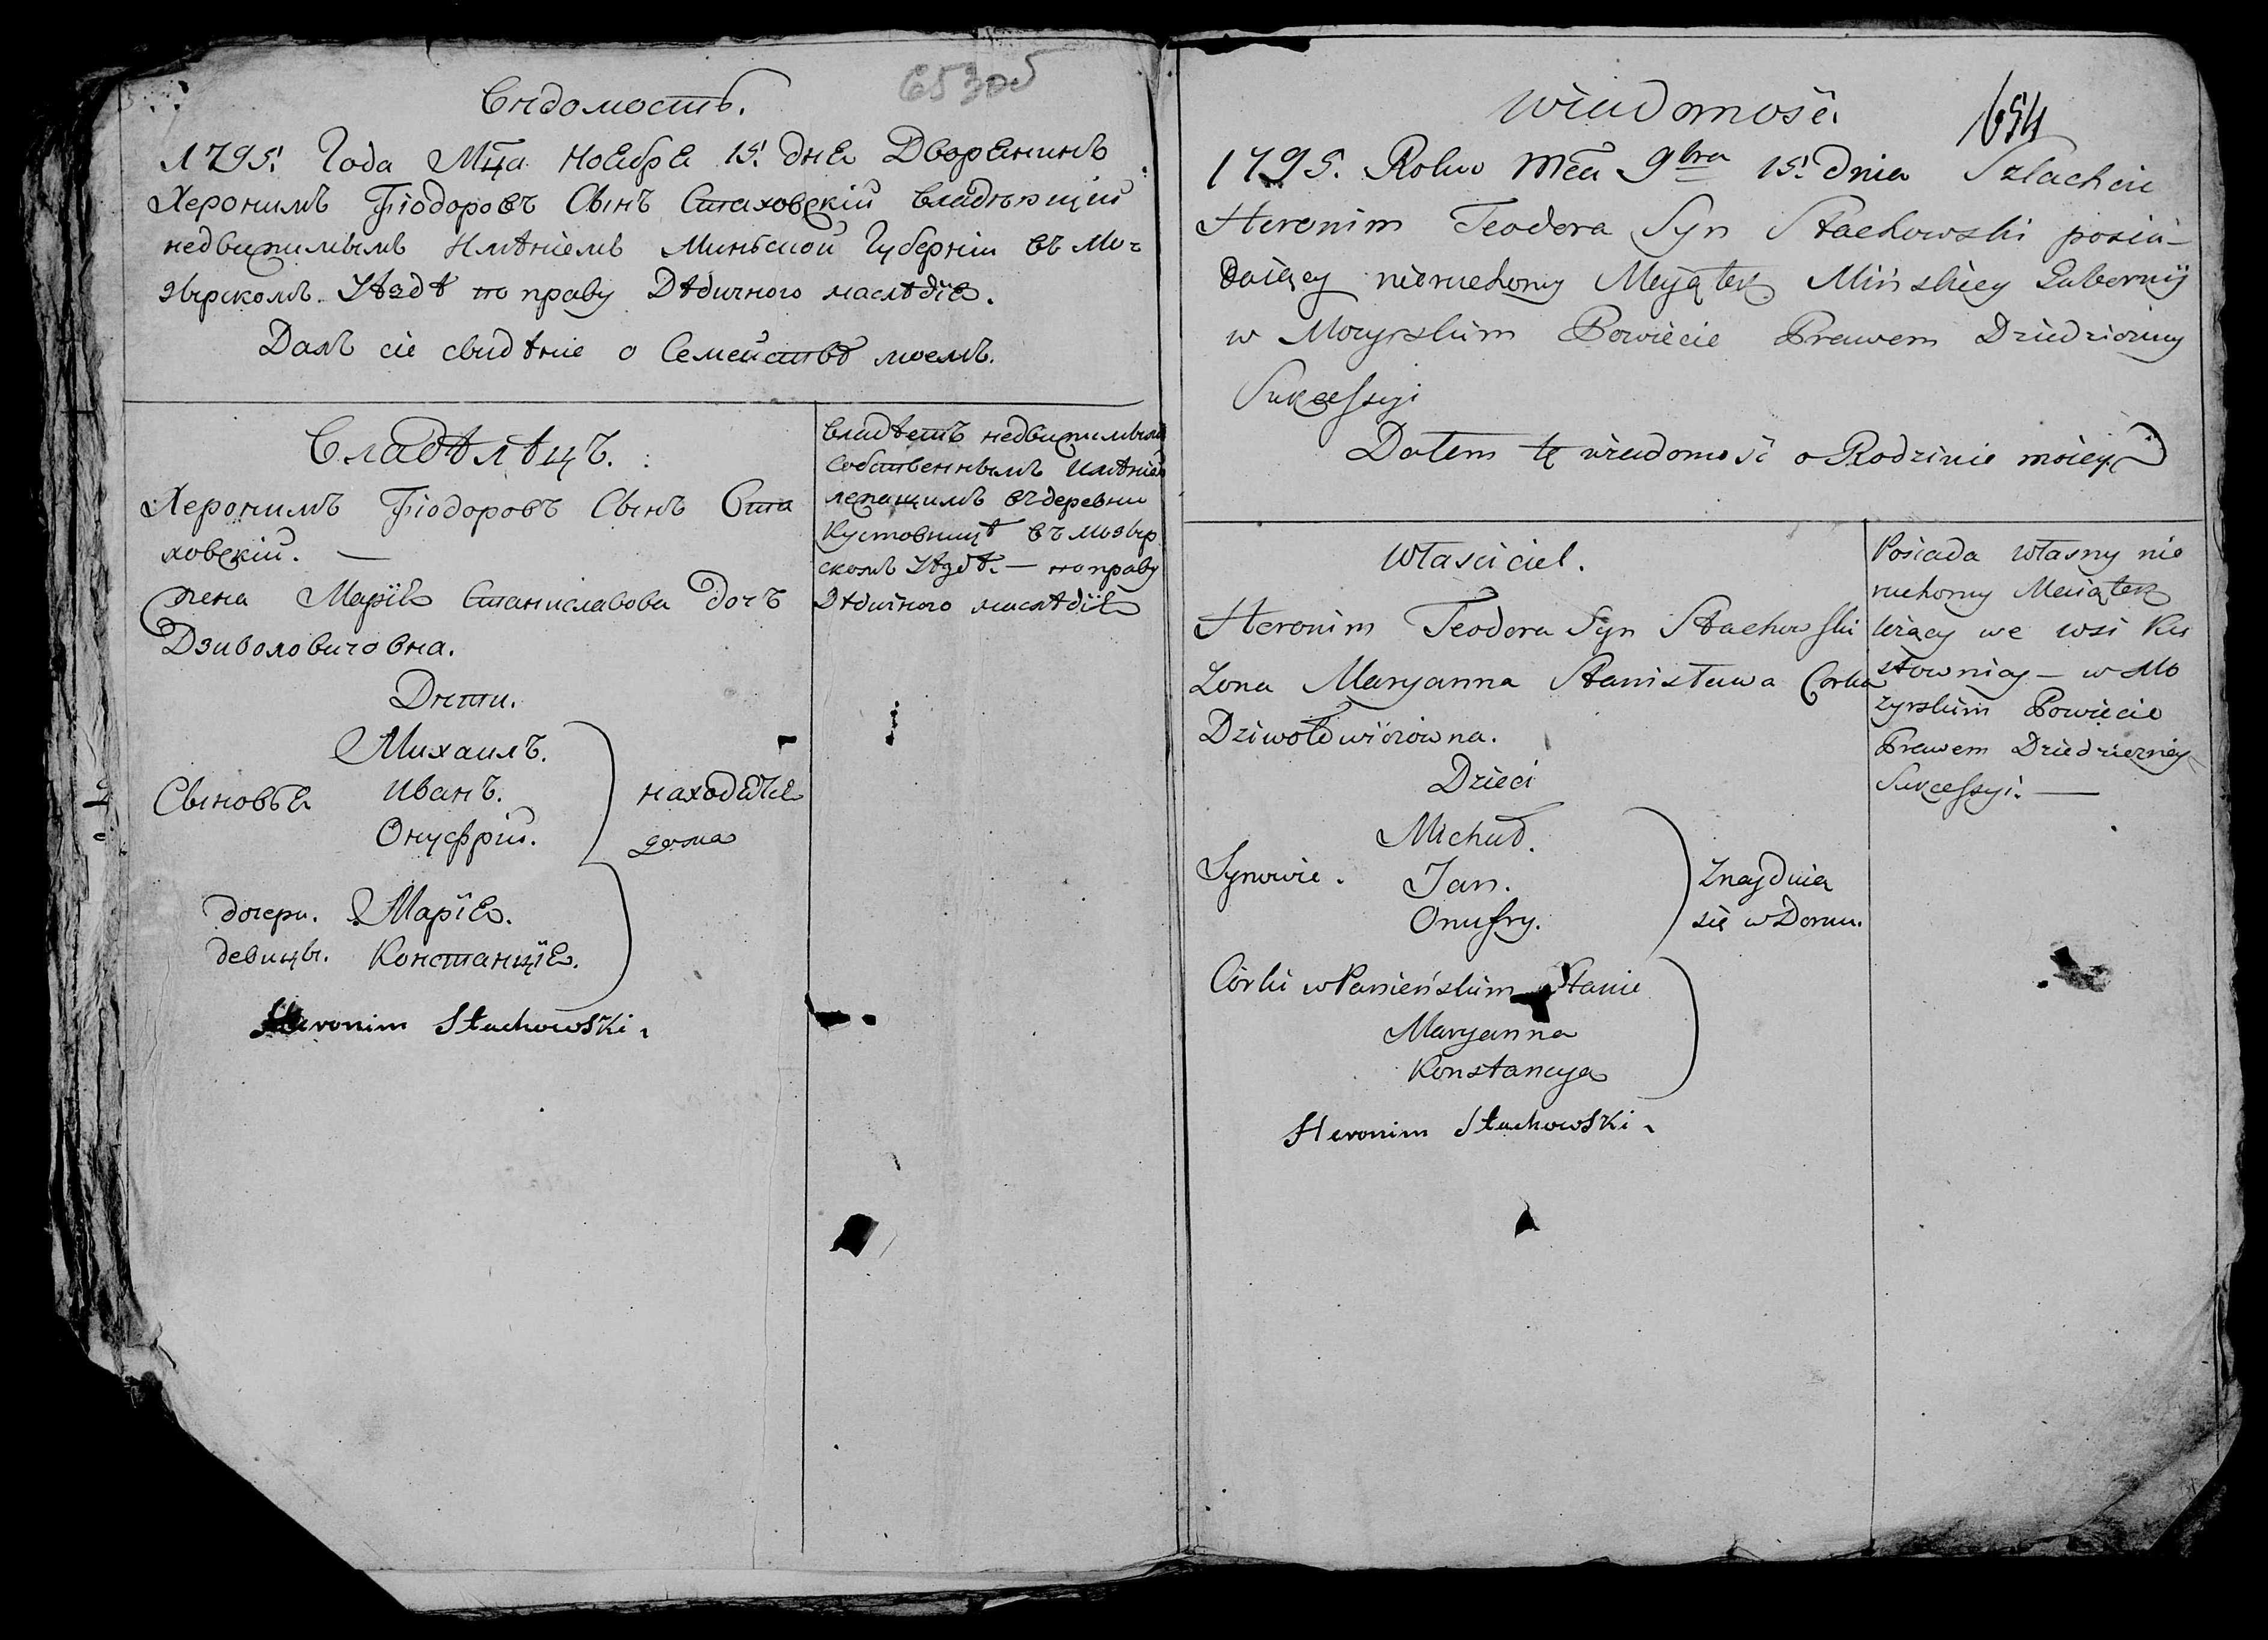 653об
Вѣдомость.
1795. Года Мца Ноября 15. дня Дворянинъ
Херонимъ Ѳіодоровъ Сынъ Стаховскій владѣющій
недвижимымъ Имѣніемъ Минской Губерніи въ Мо-
зырскомъ Уѣздѣ по праву Дѣдичного наслѣдія.
Далъ сіе свидѣніе о Семействѣ моемъ.
Владѣлѣцъ.
Херонимъ Ѳіодоровъ Сынъ Ста
ховскій. —
жена Марія Станиславова дочъ
Дзиволовичовна.
Дѣти.
Михаилъ.
Сыновья Иванъ. находятся
Онуфрій. дома
дочери. Марія.
девицы. Констанція.
Heronim Stachowski.
владѣетъ недвижимымъ
собственнымъ имѣніем
лежащимъ въ деревни
Кустовницѣ въ мозыр
скомъ Уѣздѣ. — по праву
Дѣдичного наслѣдія
654
Wiadomość.
1795. Roku Mca 9bra 15. Dnia Szlachcic
Heronim Teodora Syn Stachowski posia-
daiący nieruchomy Maiątek Mińskiey Gubernij
w Mozyrskim Powiecie Prawem Dziedziczney
Sukcessyi
Dałem tę wiadomość o Rodzinie moiey
Własciciel.
Heronim Teodora Syn Stachowski
Zona Maryanna Stanisława Corka
Dziwołowiczowna.
Dzieci
Michał.
Synowie. Jan. Znayduią
Onufry. się w Domu.
Córki w Panieńskim Stanie
Maryanna
Konstancya
Heronim Stachowski.
Posiada własny nie
ruchomy Maiątek
leżący we wsi Ku
stownicy — w Mo
zyrskim Powiecie
Prawem Dziedziczney
Sukcessyi. —